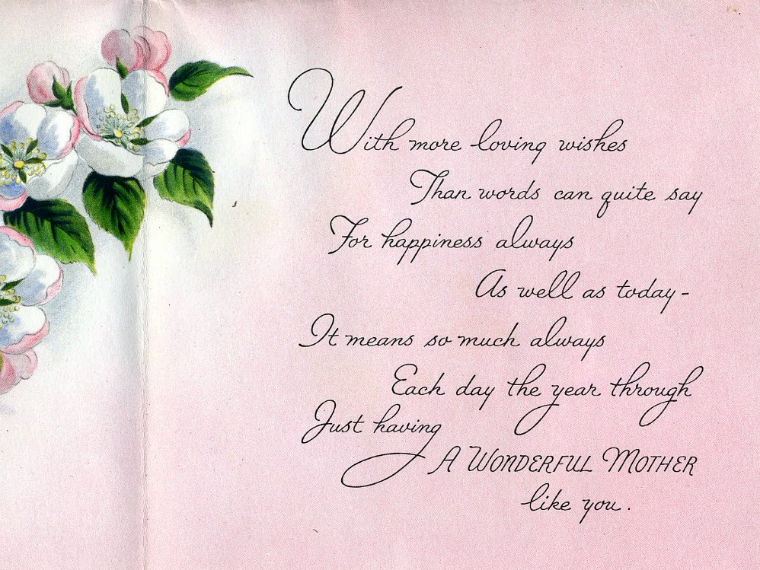 With more loving wishes
Than words can quite say
For happiness always
As well as today-
It means so much always
Each day the year through
Just having
A WONDERFUL MOTHER
like you.